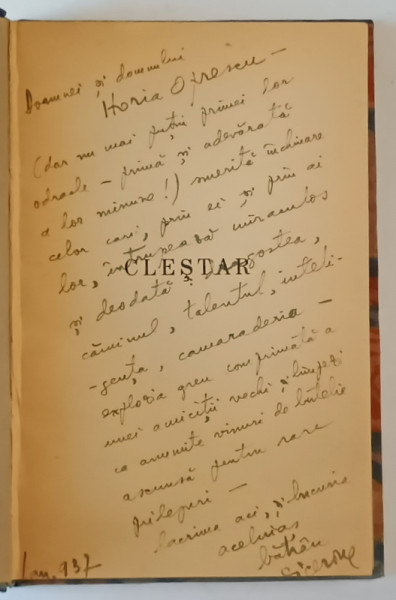 Doamnei și domnului
Horia Oprescu —
(dar nu mai puțin primei lor
odrasle — primă și adevărată
a lor minune!) smerită închinare
celor cari, prin ei și prin ai
lor, întrupează miraculos
CLEȘTAR
și deodată dragostea,
căminul, talentul, inteli-
-gența, camaraderia —
explozia greu comprimată a
unei amiciții vechi și limpezi
ca anumite vinuri de
ascunsă pentru rare
prilejuri —
lacrima aci, și bucuria
aceluias
bătrân
Ian. 937